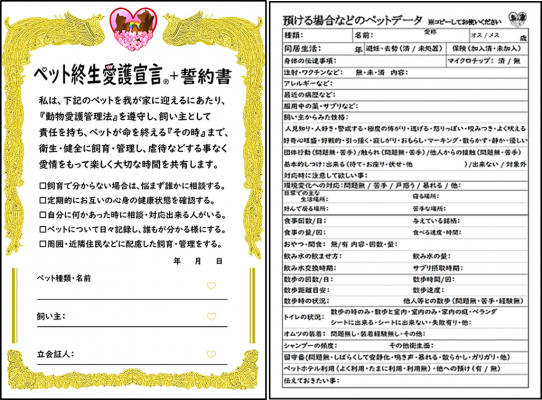 ペット終生愛護宣言®+誓約書
私は、下記のペットを我が家に迎えるにあたり、
『動物愛護管理法』を遵守し、飼い主として
責任を持ち、ペットが命を終える『その時』まで、
衛生・健全に飼育・管理し、虐待などする事なく
愛情をもって楽しく大切な時間を共有します。
□飼育で分からない場合は、悩まず誰かに相談する。
□定期的にお互いの心身の健康状態を確認する。
□自分に何かあった時に相談・対応出来る人がいる。
□ペットについて日々記録し、誰もが分かる様にする。
□周囲・近隣住民などに配慮した飼育・管理をする。
年 月 日
ペット種類・名前
飼い主:
立会証人:
預ける場合などのペットデータ ※コピーしてお使いください
種類: 名前: 愛称 オス / メス 歳
同居生活: 年 避妊・去勢 (済 / 未処置) 保険 (加入済・未加入)
身体の伝達事項: マイクロチップ: 済 / 無
注射・ワクチンなど: 無・未・済 内容:
アレルギーなど:
最近の病歴など:
服用中の薬・サプリなど:
飼い主からみた性格:
人見知り・人好き・警戒する・極度の怖がり・逃げる・怒りっぽい・咬みつき・よく吠える
好奇心旺盛・好戦的・引っ掻く・寂しがり・おもらし・マーキング・散らかす・静か・優しい
団体行動 (問題無・苦手) /触られる (問題無・苦手) /他人からの接触 (問題無・苦手)
基本的しつけ:出来る (待て・お座り・伏せ・他 ) /出来ない / 対象外
対応時に注意して欲しい事:
環境変化への対応: 問題無 / 苦手 / 戸惑う / 暴れる / 他:
日常での主な生活場所: 寝る場所:
好んで居る場所: 苦手な場所:
食事回数/日: 与えている銘柄:
食事の量/回: 食べる速度・時間:
おやつ・間食: 無/有 内容・回数・量:
飲み水の飲ませ方: 飲み水の量:
飲み水交換時期: サプリ摂取時期:
散歩の回数/日: 散歩時間/回:
散歩距離目安: 散歩速度:
散歩時の状況: 他人等との散歩 (問題無・苦手・経験無)
トイレの状況: 散歩の時のみ・散歩と室内・室内のみ・家内の庭・ベランダ
シートに出来る・シートに出来ない・失敗有り・他:
オムツの装着: 問題無し・装着経験無し・その他:
シャンプーの頻度: その他衛生面:
留守番 (問題無・しばらくして安静化・鳴き声・暴れる・散らかし・ガリガリ・他)
ペットホテル利用 (よく利用・たまに利用・利用無)・他への預け (有 / 無)
伝えておきたい事: